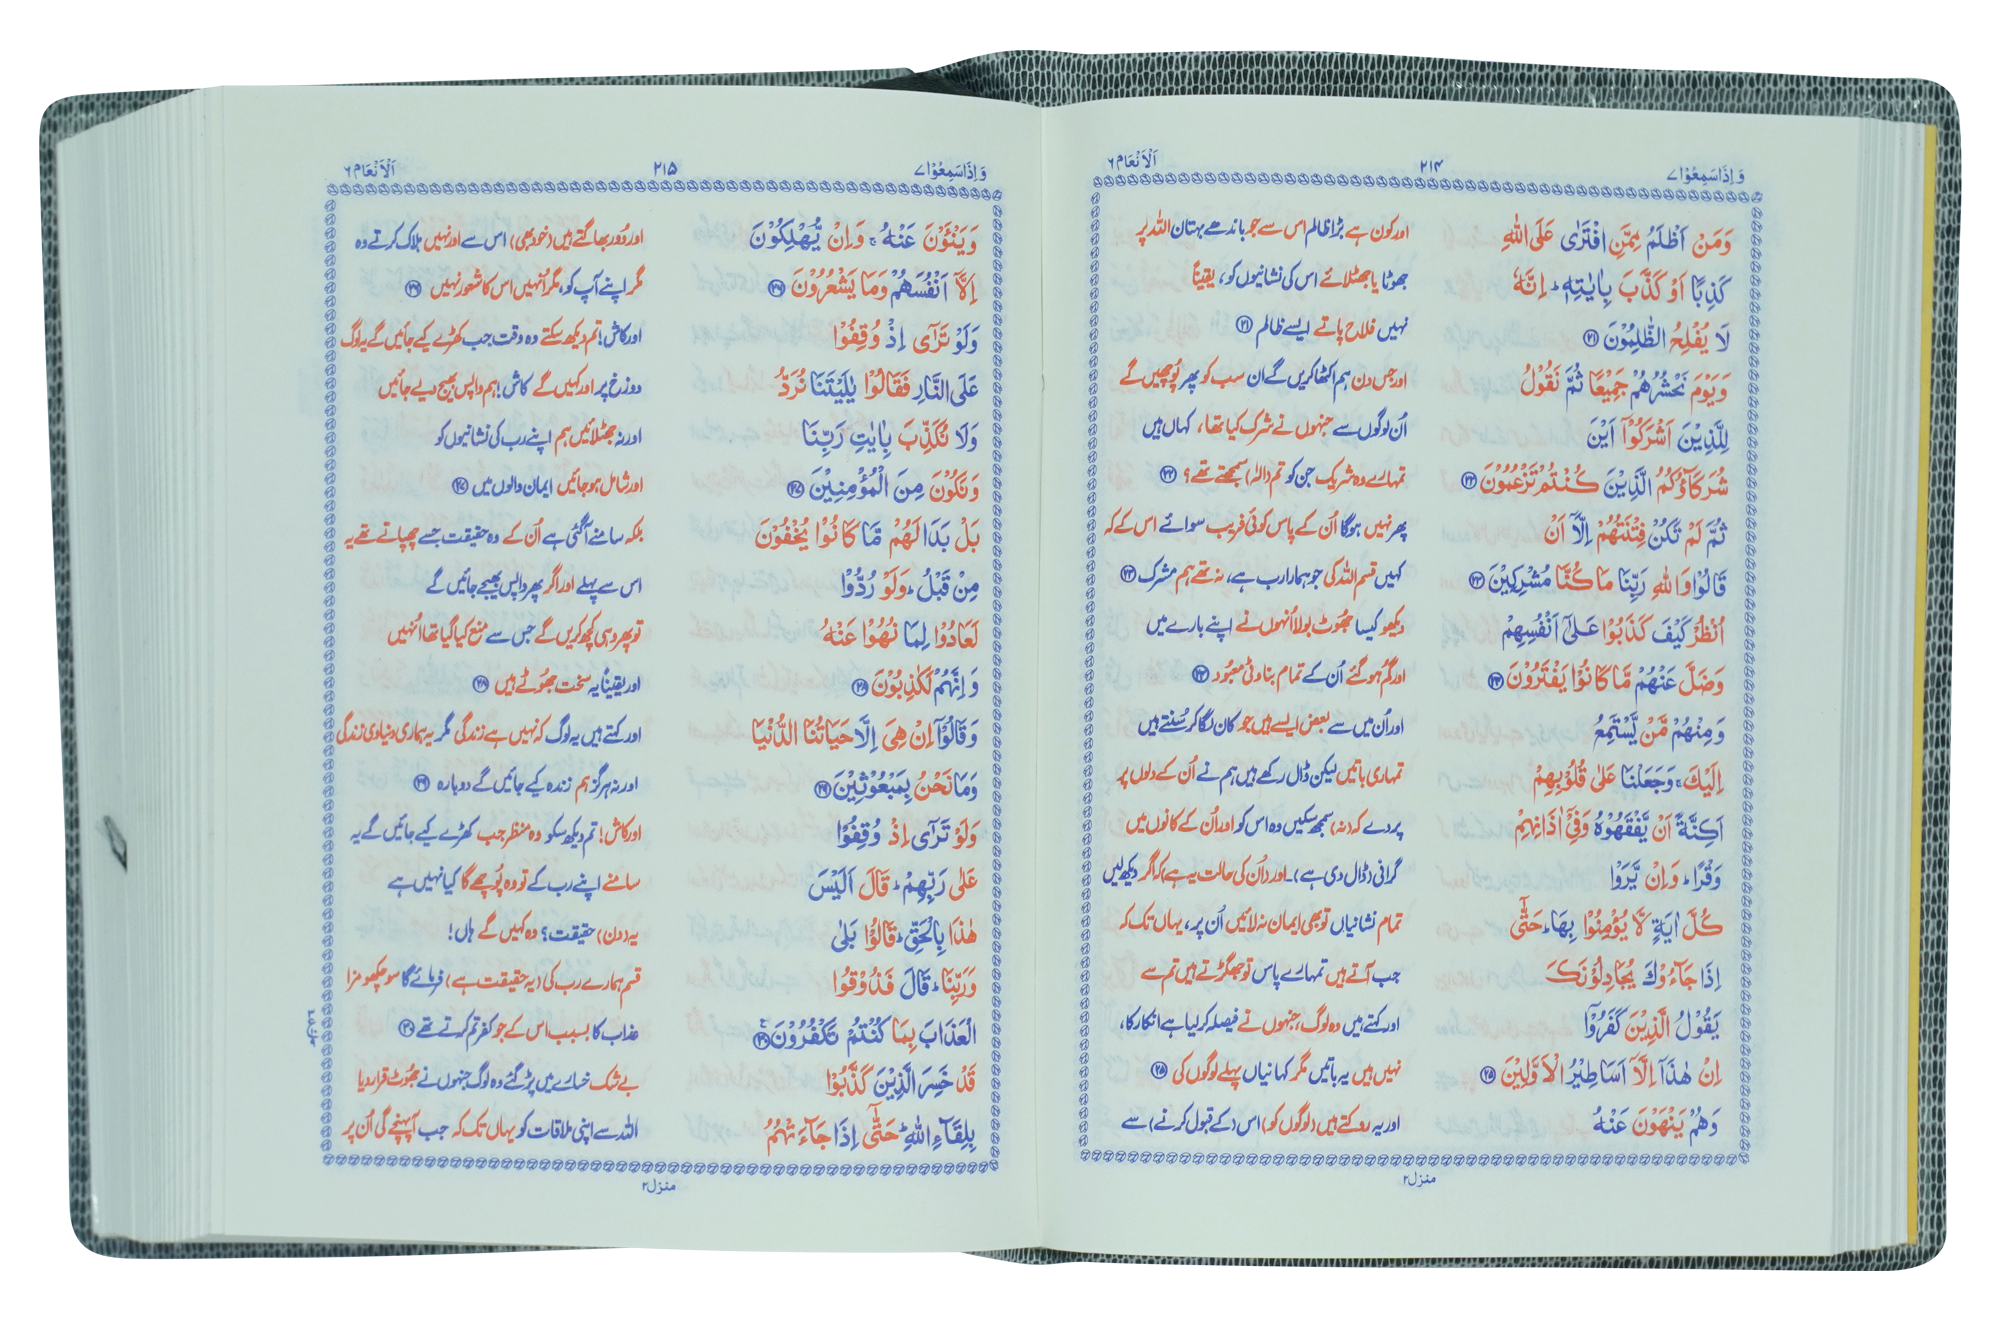 وَاِذَا سَمِعُوْا ٧ ٢١٤ اَلْاَنْعَام ٦
وَمَنْ اَظْلَمُ مِمَّنِ افْتَرٰى عَلَى اللّٰهِ اور کون ہے بڑا ظالم اس سے جو باندھے بہتان اللہ پر
كَذِبًا اَوْ كَذَّبَ بِاٰيٰتِهٖ ؕ اِنَّهٗ جھوٹا یا جھٹلائے اس کی نشانیوں کو، یقیناً
لَا يُفْلِحُ الظّٰلِمُوْنَ ﴿٢١﴾ نہیں فلاح پاتے ایسے ظالم ﴿٢١﴾
وَيَوْمَ نَحْشُرُهُمْ جَمِيْعًا ثُمَّ نَقُوْلُ اور جس دن ہم اکٹھا کریں گے ان سب کو پھر پُوچھیں گے
لِلَّذِيْنَ اَشْرَكُوْۤا اَيْنَ اُن لوگوں سے جنہوں نے شرک کیا تھا، کہاں ہیں
شُرَكَآؤُكُمُ الَّذِيْنَ كُنْتُمْ تَزْعُمُوْنَ ﴿٢٢﴾ تمہارے وہ شریک جن کو تم (الٰہ) سمجھتے تھے؟ ﴿٢٢﴾
ثُمَّ لَمْ تَكُنْ فِتْنَتُهُمْ اِلَّاۤ اَنْ پھر نہیں ہوگا اُن کے پاس کوئی فریب سوائے اس کے کہ
قَالُوْا وَاللّٰهِ رَبِّنَا مَا كُنَّا مُشْرِكِيْنَ ﴿٢٣﴾ کہیں قسم اللہ کی جو ہمارا رب ہے، نہ تھے ہم مشرک ﴿٢٣﴾
اُنْظُرْ كَيْفَ كَذَبُوْا عَلٰۤى اَنْفُسِهِمْ دیکھو کیسا جھُوٹ بولا اُنہوں نے اپنے بارے میں
وَضَلَّ عَنْهُمْ مَّا كَانُوْا يَفْتَرُوْنَ ﴿٢٤﴾ اور گُم ہو گئے اُن کے تمام بناوٹی معبُود ﴿٢٤﴾
وَمِنْهُمْ مَّنْ يَّسْتَمِعُ اور اُن میں سے بعض ایسے ہیں جو کان لگا کر سُنتے ہیں
اِلَيْكَ ۚ وَجَعَلْنَا عَلٰى قُلُوْبِهِمْ تمہاری باتیں لیکن ڈال رکھے ہیں ہم نے اُن کے دلوں پر
اَكِنَّةً اَنْ يَّفْقَهُوْهُ وَفِيْۤ اٰذَانِهِمْ پردے کہ (نہ) سمجھ سکیں وہ اس کو اور اُن کے کانوں میں
وَقْرًا ؕ وَاِنْ يَّرَوْا گرانی (ڈال دی ہے)۔ اور (اُن کی حالت یہ ہے) کہ اگر دیکھ لیں
كُلَّ اٰيَةٍ لَّا يُؤْمِنُوْا بِهَا ؕ حَتّٰۤى تمام نشانیاں تو بھی ایمان نہ لائیں اُن پر، یہاں تک کہ
اِذَا جَآءُوْكَ يُجَادِلُوْنَكَ جب آتے ہیں تمہارے پاس تو جھگڑتے ہیں تم سے
يَقُوْلُ الَّذِيْنَ كَفَرُوْۤا اور کہتے ہیں وہ لوگ، جنہوں نے فیصلہ کر لیا ہے انکار کا،
اِنْ هٰذَاۤ اِلَّاۤ اَسَاطِيْرُ الْاَوَّلِيْنَ ﴿٢٥﴾ نہیں ہیں یہ باتیں مگر کہانیاں پہلے لوگوں کی ﴿٢٥﴾
وَهُمْ يَنْهَوْنَ عَنْهُ اور یہ روکتے ہیں (لوگوں کو) اس (کے قبول کرنے) سے
منزل ٢
وَاِذَا سَمِعُوْا ٧ ٢١٥ اَلْاَنْعَام ٦
وَيَنْـَٔوْنَ عَنْهُ ۚ وَاِنْ يُّهْلِكُوْنَ اور دُور بھاگتے ہیں (خود بھی) اس سے اور نہیں ہلاک کرتے وہ
اِلَّاۤ اَنْفُسَهُمْ وَمَا يَشْعُرُوْنَ ﴿٢٦﴾ مگر اپنے آپ کو، مگر اُنہیں اس کا شعور نہیں ﴿٢٦﴾
وَلَوْ تَرٰۤى اِذْ وُقِفُوْا اور کاش! تم دیکھ سکتے وہ وقت جب کھڑے کیے جائیں گے یہ لوگ
عَلَى النَّارِ فَقَالُوْا يٰلَيْتَنَا نُرَدُّ دوزخ پر اور کہیں گے کاش! ہم واپس بھیج دیے جائیں
وَلَا نُكَذِّبَ بِاٰيٰتِ رَبِّنَا اور نہ جھٹلائیں ہم اپنے رب کی نشانیوں کو
وَنَكُوْنَ مِنَ الْمُؤْمِنِيْنَ ﴿٢٧﴾ اور شامل ہو جائیں ایمان والوں میں ﴿٢٧﴾
بَلْ بَدَا لَهُمْ مَّا كَانُوْا يُخْفُوْنَ بلکہ سامنے آگئی ہے اُن کے وہ حقیقت جسے چھپاتے تھے یہ
مِنْ قَبْلُ ؕ وَلَوْ رُدُّوْا اس سے پہلے اور اگر پھر واپس بھیجے جائیں گے
لَعَادُوْا لِمَا نُهُوْا عَنْهُ تو پھر وہی کچھ کریں گے جس سے منع کیا گیا تھا اُنہیں
وَاِنَّهُمْ لَكٰذِبُوْنَ ﴿٢٨﴾ اور یقیناً یہ سخت جھُوٹے ہیں ﴿٢٨﴾
وَقَالُوْۤا اِنْ هِيَ اِلَّا حَيَاتُنَا الدُّنْيَا اور کہتے ہیں یہ لوگ کہ نہیں ہے زندگی مگر یہ ہماری دنیاوی زندگی
وَمَا نَحْنُ بِمَبْعُوْثِيْنَ ﴿٢٩﴾ اور نہ ہرگز ہم زندہ کیے جائیں گے دوبارہ ﴿٢٩﴾
وَلَوْ تَرٰۤى اِذْ وُقِفُوْا اور کاش! تم دیکھ سکو وہ منظر جب کھڑے کیے جائیں گے یہ
عَلٰى رَبِّهِمْ ؕ قَالَ اَلَيْسَ سامنے اپنے رب کے تو وہ پُوچھے گا کیا نہیں ہے
هٰذَا بِالْحَقِّ ؕ قَالُوْا بَلٰى یہ (دن) حقیقت؟ وہ کہیں گے ہاں!
وَرَبِّنَا ؕ قَالَ فَذُوْقُوا قسم ہمارے رب کی (یہ حقیقت ہے) فرمائے گا سو چکھو مزا
الْعَذَابَ بِمَا كُنْتُمْ تَكْفُرُوْنَ ﴿٣٠﴾ عذاب کا بسبب اس کے جو کفر تم کرتے تھے ﴿٣٠﴾
قَدْ خَسِرَ الَّذِيْنَ كَذَّبُوْا بے شک خسارے میں پڑ گئے وہ لوگ جنہوں نے جھُوٹ قرار دیا
بِلِقَآءِ اللّٰهِ ؕ حَتّٰۤى اِذَا جَآءَتْهُمُ اللہ سے اپنی ملاقات کو یہاں تک کہ جب آ پہنچے گی اُن پر
منزل ٢